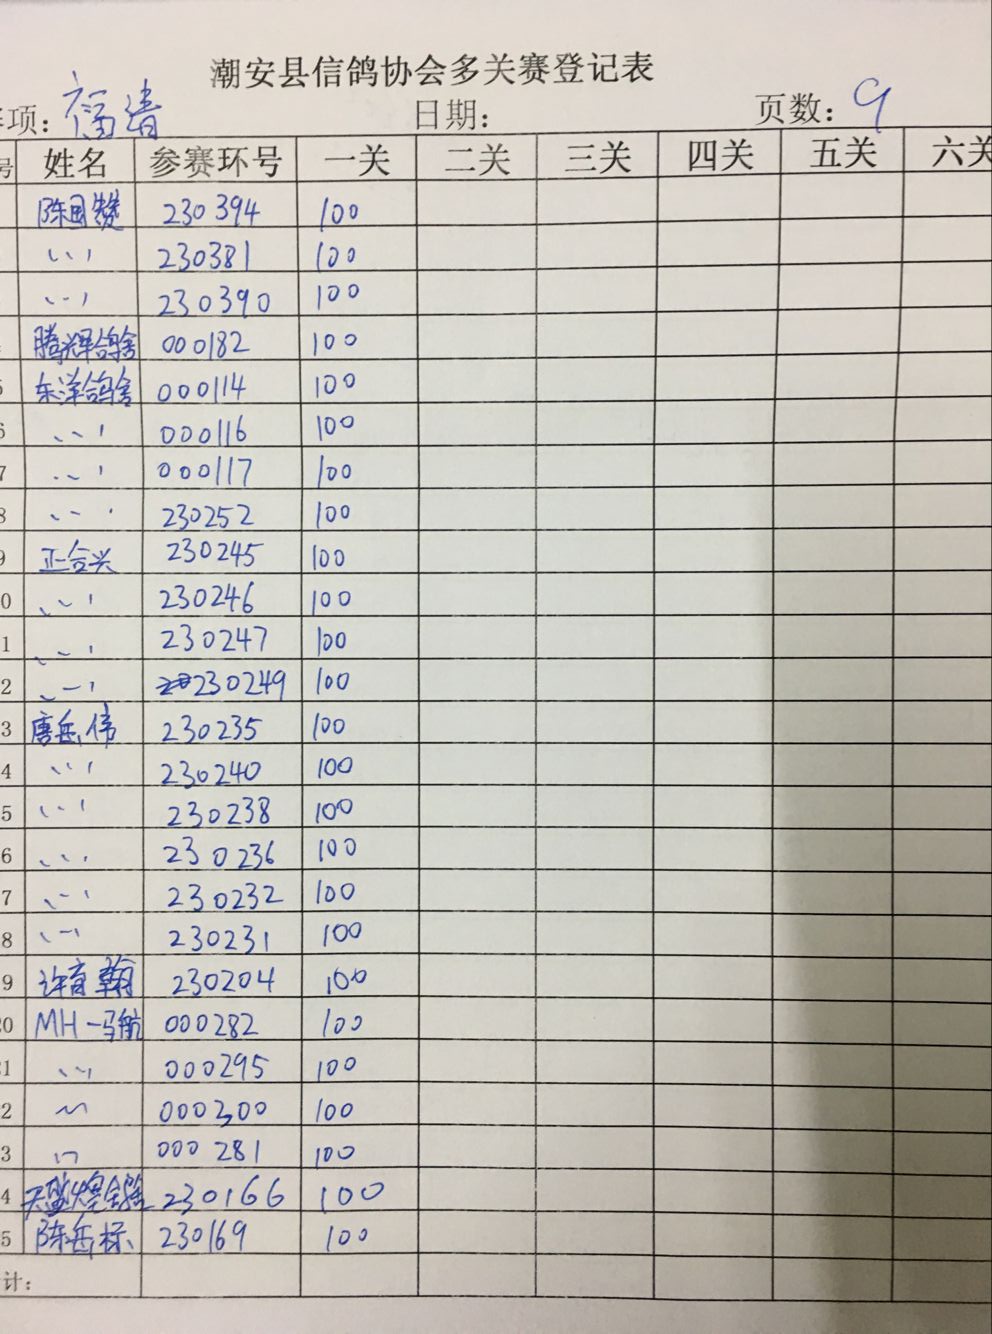 潮安县信鸽协会多关赛登记表
项: 福清 日期: 页数: 9
号 姓名 参赛环号 一关 二关 三关 四关 五关 六关
陈国赞 230394 100
〃 230381 100
〃 230390 100
腾辉鸽舍 000182 100
5 东洋鸽舍 000114 100
6 〃 000116 100
7 〃 000117 100
8 〃 230252 100
9 正合兴 230245 100
0 〃 230246 100
1 〃 230247 100
2 〃 230249 100
3 唐岳伟 230235 100
4 〃 230240 100
5 〃 230238 100
6 〃 230236 100
7 〃 230232 100
8 〃 230231 100
9 许育翰 230204 100
20 MH-马航 000282 100
1 〃 000295 100
2 〃 000300 100
3 〃 000281 100
4 230166 100
5 陈岳标 230169 100
计: